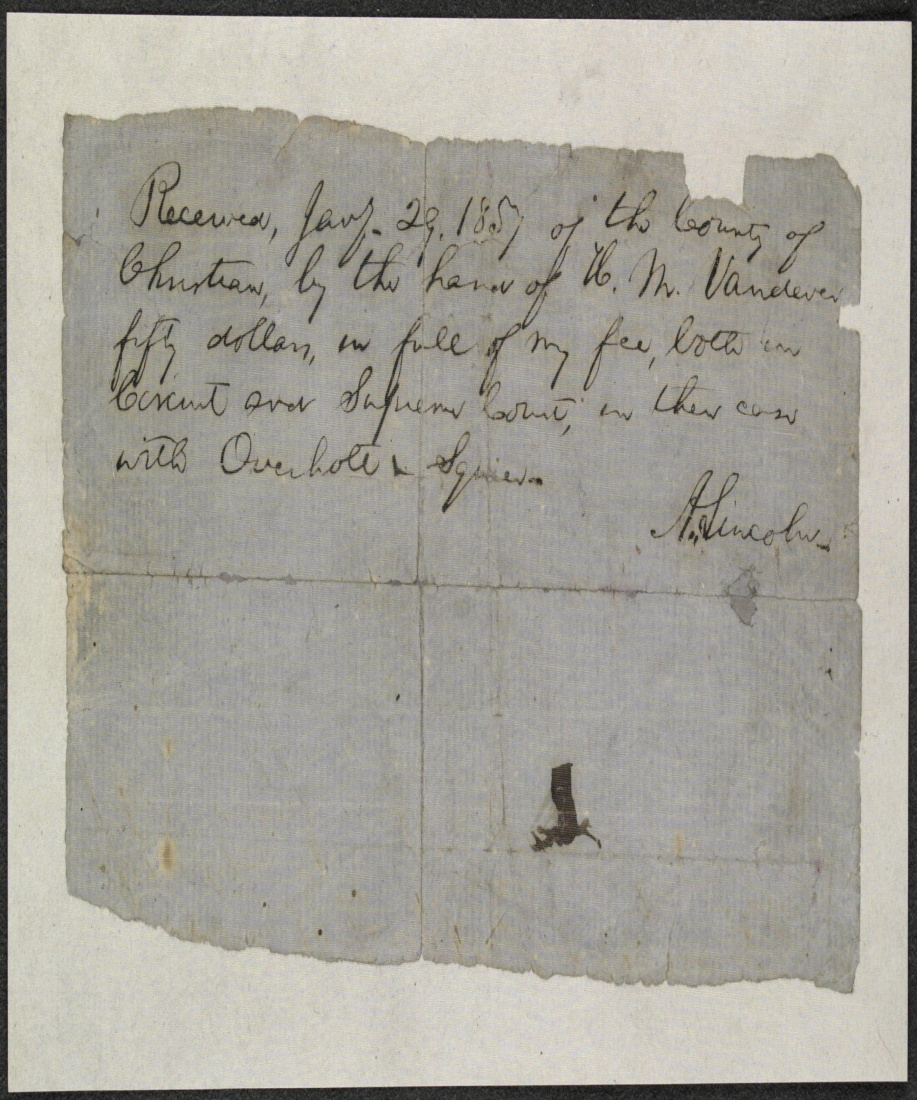 Received, Jany. 29. 1857 of the County of
Christian, by the hand of H. M. Vandever
fifty dollars, in full of my fee, both in
Circuit and Supreme Court, in their case
with Overholt & Squier.
A. Lincoln